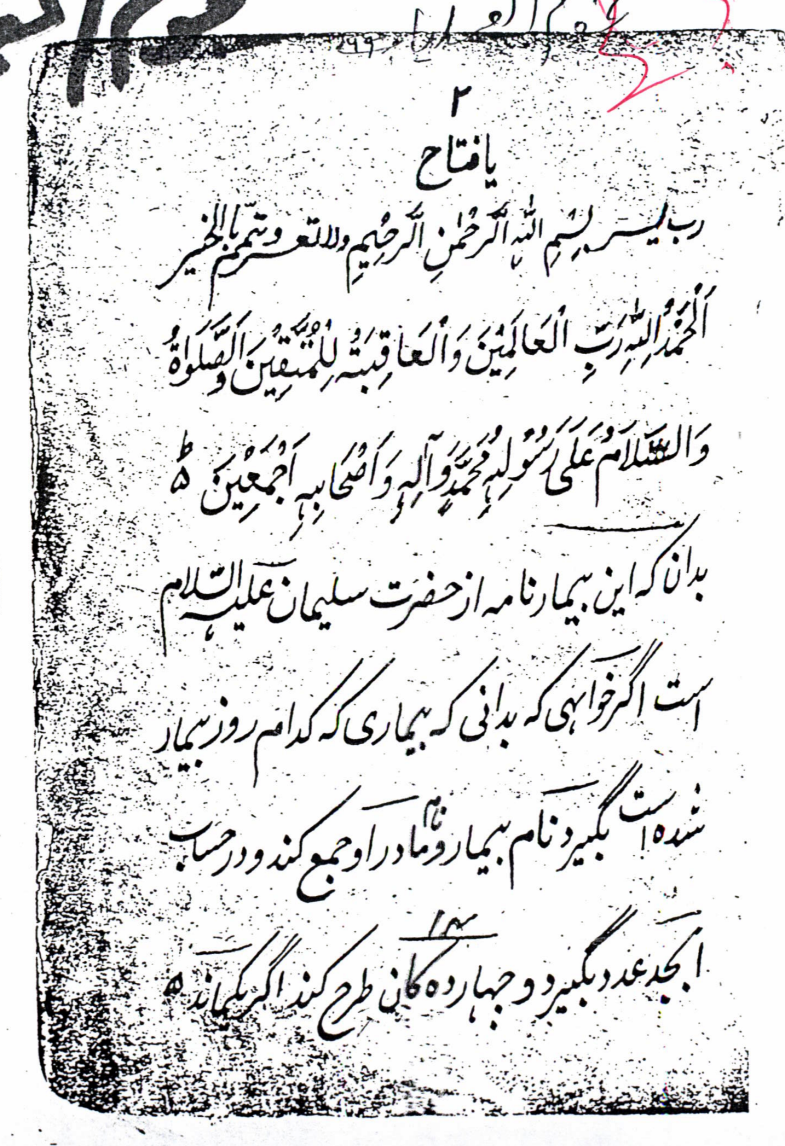 ۲
یا فتاح
رب یسر بِسْمِ اللّٰهِ الرَّحْمٰنِ الرَّحِیْمِ ولا تعسر وتمّم بالخیر
اَلْحَمْدُ لِلّٰهِ رَبِّ الْعَالَمِیْنَ وَالْعَاقِبَتُہ لِلْمُتَّقِیْنَ وَالصَّلَوٰاةُ
وَالسَّلَامُ عَلَی رَسُوْلِہٖ مُحَمَّدٍ وَآلِہٖ وَاَصْحَابِہٖ اَجْمَعِیْنَ ۵ ط
بدان کہ این بیمار نامہ از حضرت سلیمان عَلیہ السّلام
است اگر خواہی کہ بدانی کہ بیماری کہ کدام روز بیمار
شدہ است بگیرد نام بیمار و نام مادر او جمع کند و در حساب
ابجد عدد بگیرد و چہاردہ ۱۴ کان طرح کند اگر یک بماند ۵